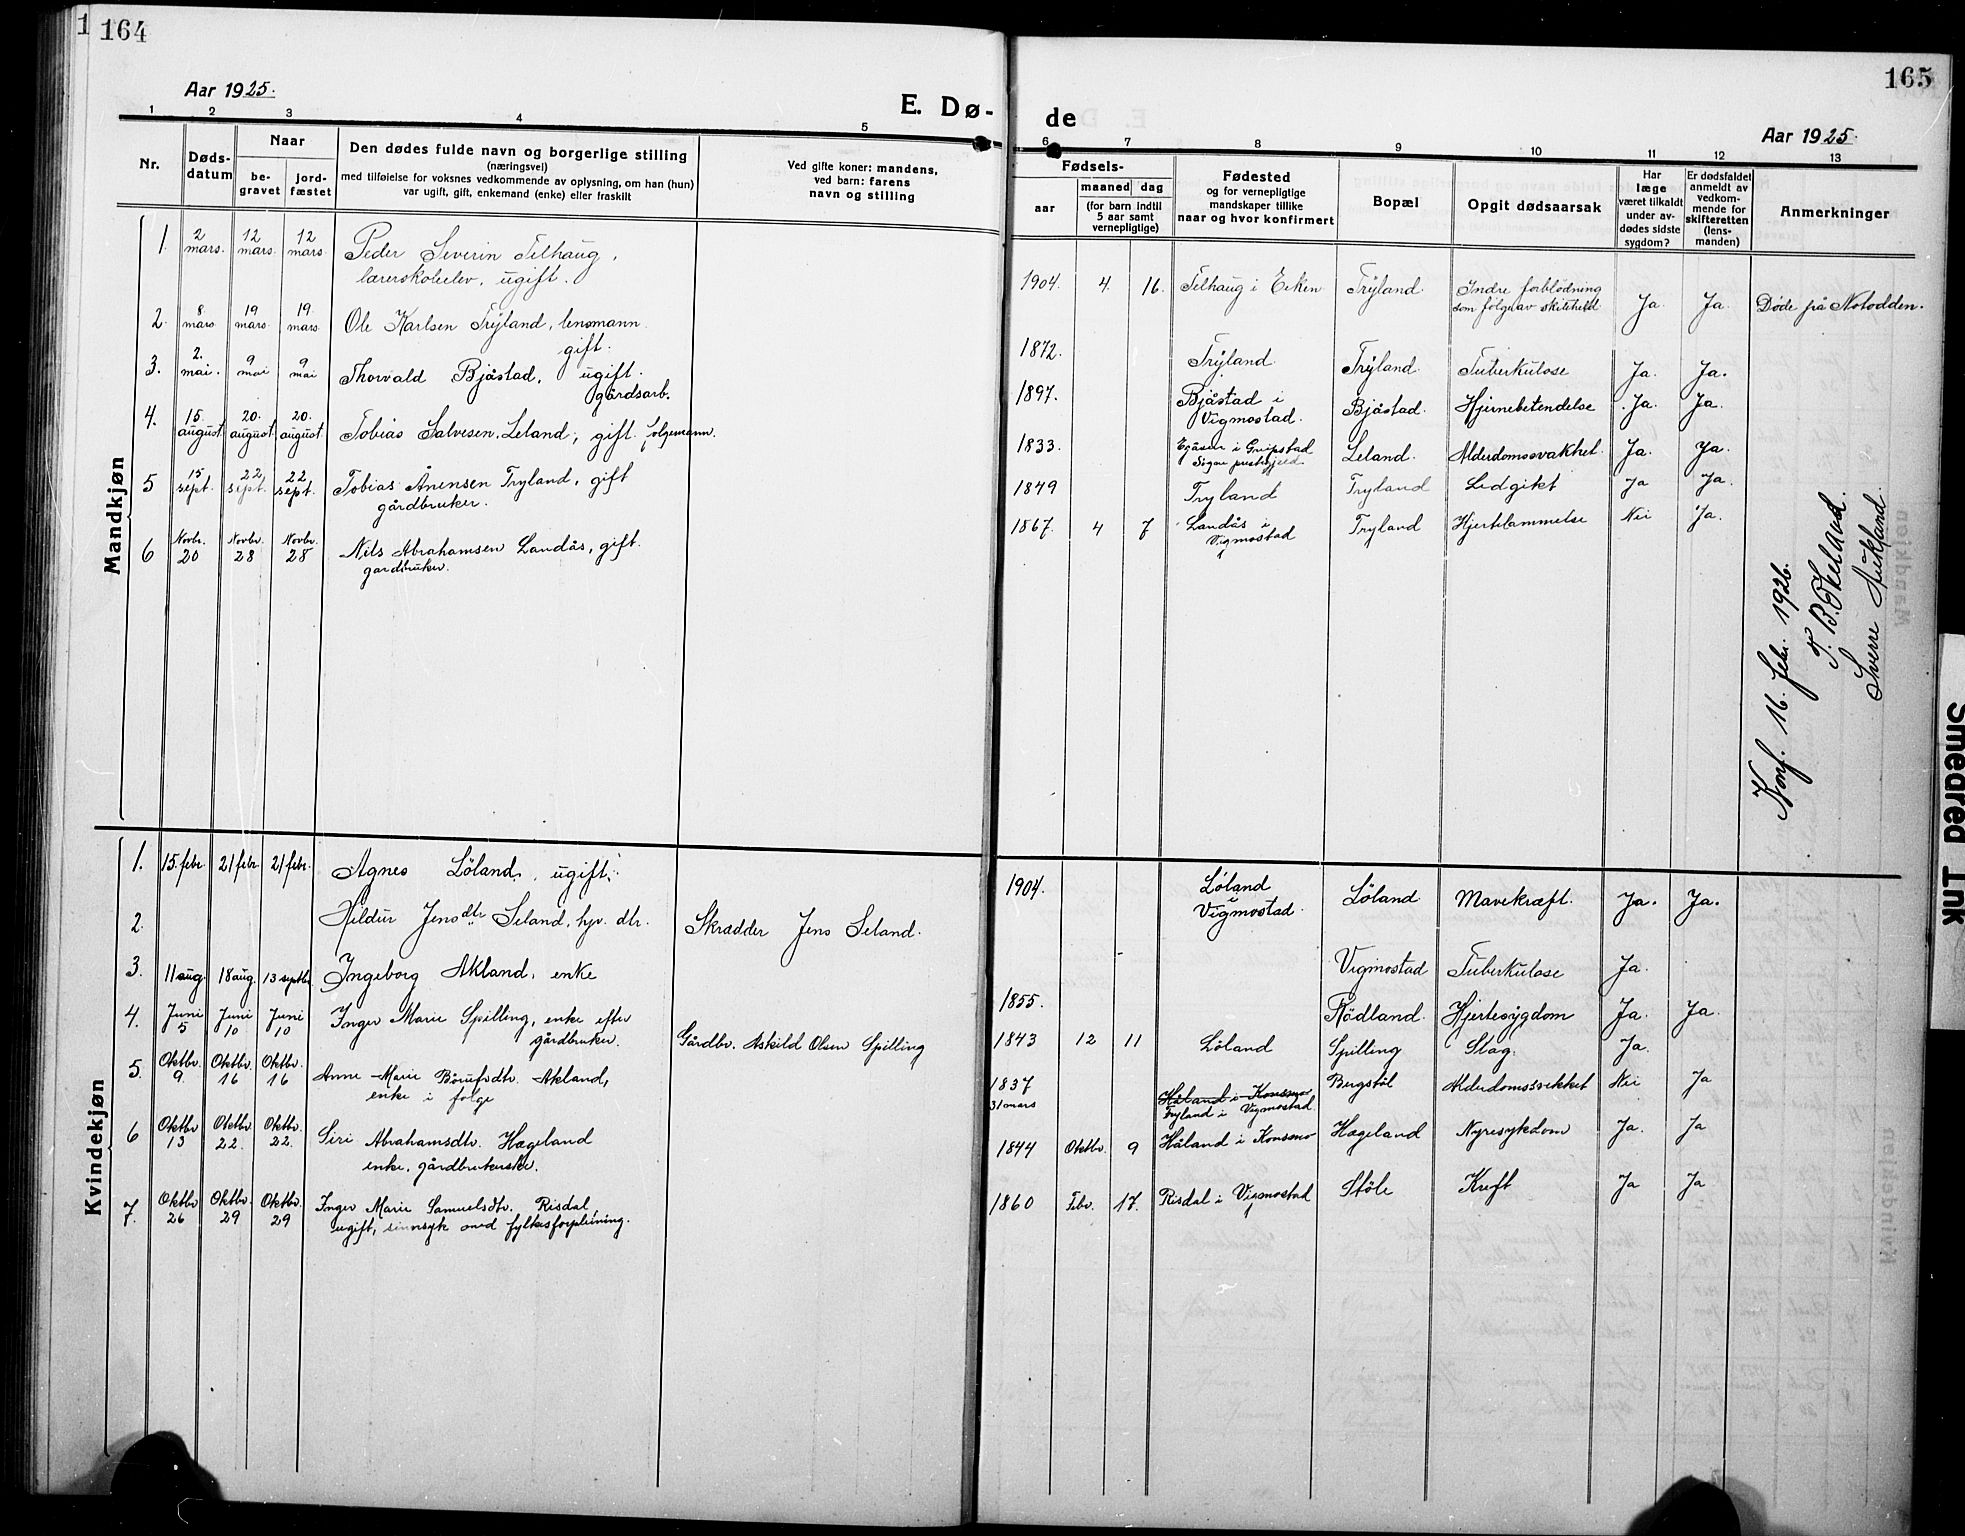 164
Aar 1925.
E. Dø-
1 2 3 4 5
Nr.
Døds-
datum
Naar
be-
gravet
jord-
fæstet
Den dødes fulde navn og borgerlige stilling
(næringsvei)
med tilføielse for voksnes vedkommende av oplysning, om han (hun)
var ugift, gift, enkemand (enke) eller fraskilt
Ved gifte koner: mandens,
ved barn: farens
navn og stilling
Mandkjøn
1. 2 mars. 12 mars. 12 mars. Peder Severin Telhaug,
lærerskoleelev, ugift.
2. 8 mars 19 mars 19. mars. Ole Karlsen Trÿland, lensmann.
gift.
3. 2. mai. 9 mai 9 mai Thorvald Bjåstad, ugift.
gårdsarb.
4. 15. august 20. august 20. august. Tobias Salvesen Leland, gift. folgemann.
5 15 sept. 22 sept. 22 sept. Tobias Ånensen Tryland, gift
gårdbruker.
6 Novbr. 20 Novbr. 28 Novbr. 28 Nils Abrahamsen Landås, gift.
gardbruker.
Kvindekjøn
1. 15. febr. 21 febr. 21 febr. Agnes Löland, ugift.
2. Hildur Jensdtr. Seland, hjv. dtr. Skrædder Jens Seland.
3. 11 aug. 18 aug. 13 septbr. Ingeborg Akland, enke
4. Juni 5 Juni 10 Juni 10 Inger Marie Spilling, enke efter
gårdbruker. Gårdbr. Askild Olsen Spilling
5. Oktbr. 9. Oktbr. 16 Oktbr. 16 Anne Marie Börufsdtr. Akland,
enke i folge
6 Oktbr 13 Oktbr 22. Oktbr. 22. Siri Abrahamsdtr. Hægeland
enke, gårdbrukerske.
7. Oktbr 26 Oktbr. 29 Oktbr. 29 Inger Marie Samuelsdtr. Risdal,
ugift, sinnsyk med fylkesforpleining.
165
de
Aar 1925.
6 7 8 9 10 11 12 13
Fødsels-
aar
maaned dag
(for barn indtil
5 aar samt
vernepligtige)
Fødested
og for vernepligtige
mandskaper tillike
naar og hvor konfirmert
Bopæl
Opgit dødsaarsak
Har
læge
været tilkaldt
under av-
dødes sidste
sygdom?
Er dødsfaldet
anmeldt av
vedkom-
mende for
skifteretten
(lens-
manden)
Anmerkninger
1904. 4. 16. Telhaug i Eiken Trÿland. Indre forblödning
som følge av skiteheld Ja Ja Døde på Notodden.
1872. Trÿland. Trÿland. Tuberkulose Ja. Ja.
1897. Bjåstad i
Vigmostad. Bjåstad. Hjernebetendelse Ja. Ja.
1833. i Greipstad
Leland. Alderdomssvakhet. Ja. Ja.
1849 Tryland Tryland Ledgikt Ja Ja.
1867. 4 7 Landås i
Vigmostad Tryland Hjertelammelse Nei Ja.
Konf. 16. febr. 1926.
Sverre Aukland.
1904. Löland
i
Vigmostad. Löland Mavekræft. Ja. Ja.
Vigmostad Tuberkulose Ja.
1855. Rödland. Hjertesygdom Ja. Ja.
1843 12 11 Löland Spilling Slag. Ja.
1837
31 mars Håland i Konsmo
Tryland i Vigmostad. Bergstöl Alderdomssvekket Nei Ja
1844 Oktbr. 9 Håland i Konsmo Hægeland Nyresykdom Ja. Ja
1860 Febr. 17. Risdal i Vigmostad Stöle Kreft Ja Ja
Smeared Ink